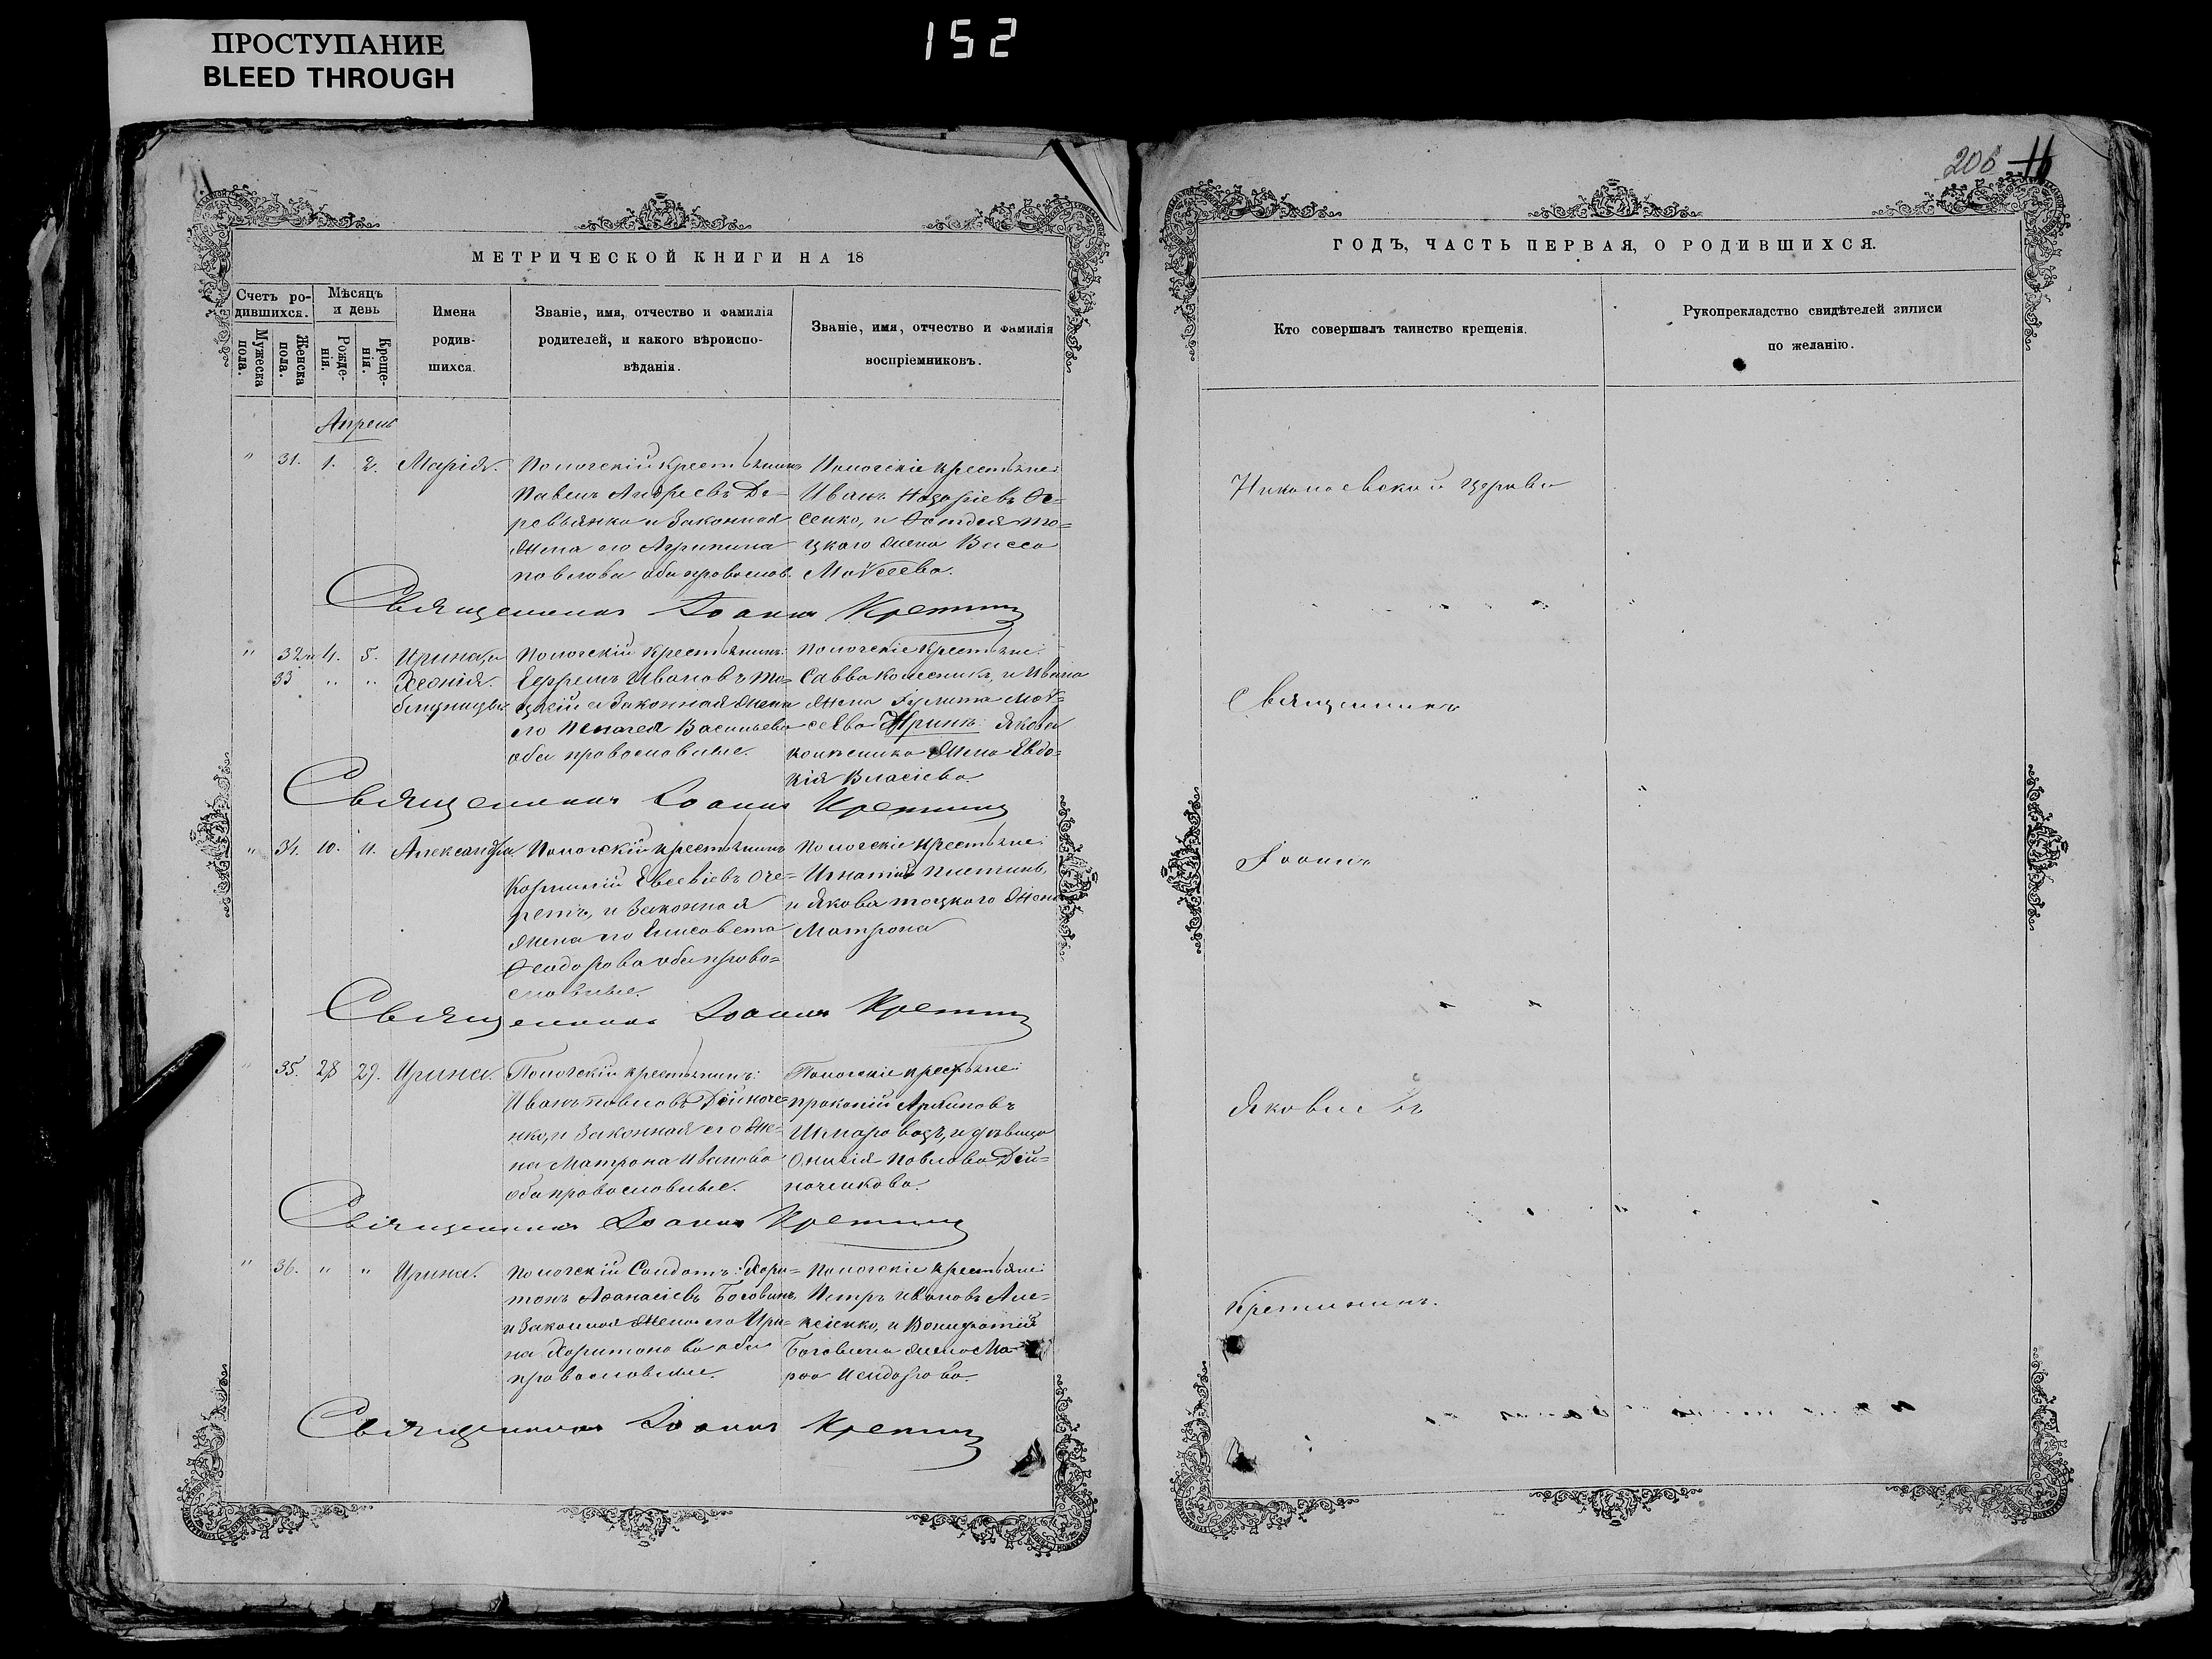 ПРОСТУПАНИЕ
BLEED THROUGH
152
206 16
МЕТРИЧЕСКОЙ КНИГИ НА 18
Счетъ ро-
дившихся.
Мужеска пола.
Женска пола.
Мѣсяцъ и день
Рожде-
нія.
Креще-
нія.
Имена
родив-
шихся.
Званіе, имя, отчество и фамилія
родителей, и какого вѣроиспо-
вѣданія.
Званіе, имя, отчество и фамилія
воспріемниковъ.
Апрель
" 31. 1. 2. Марія.
Пологскій крестьянинъ
Павелъ Андреевъ Де-
ревьянко и законная
жена его Агрипина
Павлова оба православ.
Пологскіе крестьяне:
Иванъ Назаріевъ
сенко, и
цкаго жена Васса
Моѵсеева.
Священникъ Іоаннъ Кретинин
" 32 и 4. 5. Ирина, и
33 " " Ксенія.
близницы
Пологскій крестьянинъ:
Ефремъ Ивановъ То-
цкій и законная жена
его Пелагея Васильева
оба православные.
Пологскіе крестьяне:
Савва Колесникъ, и Ивана
жена Іулита Моѵ-
сеева Ирини: Якова
жена Евдо-
кія Власіева
Священникъ Іоаннъ Кретинин
" 34. 10. 11. Александра.
Пологскій крестьянинъ
Корнилій Евсевіевъ Оче-
ретъ, и законная
жена его Елисавета
Ѳеодорова оба право-
славные.
Пологскіе крестьяне:
Игнатій
и Якова Тоцкого жена
Матрона
Священникъ Іоаннъ Кретинин
" 35. 28 29. Ирина.
Пологскій крестьянинъ:
Иванъ Павловъ Дейноче-
нко, и законная его же-
на Матрона Иванова
оба православные.
Пологскіе крестьяне:
Прокопій Архиповъ
Шкаро и дѣвица
Онисія Павлова Дей-
наченкова.
Священникъ Іоаннъ Кретинин
" 36. " " Ирина.
Пологскій Солдатъ: Хари-
тонъ Аѳанасіевъ Боговинъ,
и законная жена его Ири-
на Харитонова оба
православные.
Пологскіе крестьяне:
Петръ Ивановъ Але-
ксіенко, и Вонифатій
Боговина жена Ма-
рѳа Исидорова.
Священникъ Іоаннъ Кретинин
ГОДЪ, ЧАСТЬ ПЕРВАЯ, О РОДИВШИХСЯ.
Кто совершалъ таинство крещенія.
Рукоприкладство свидѣтелей записи
по желанію.
Николаевской церкви
Священникъ
Іоаннъ
Яковлевъ
Кретининъ.